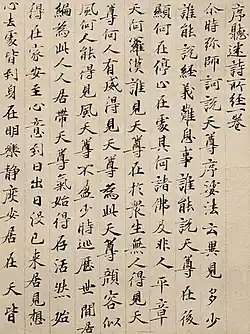 序聽迷詩所經一卷
尒時弥師訶說天尊序娑法云異見多少
誰能說經義難息事誰能說天尊在後
顯何在停止在處其何諸佛及非人平章
天阿羅漢誰見天尊在於眾生無人得見天
尊何人有威得見天尊為此天尊顏容似
風何人能得見風天尊不盈少時巡歷世間居
編為此人人居帶天尊氣始得存活然始
得在家安至心意到日出日沒已來居見想
心去處皆到身在明樂靜度安居在天皆